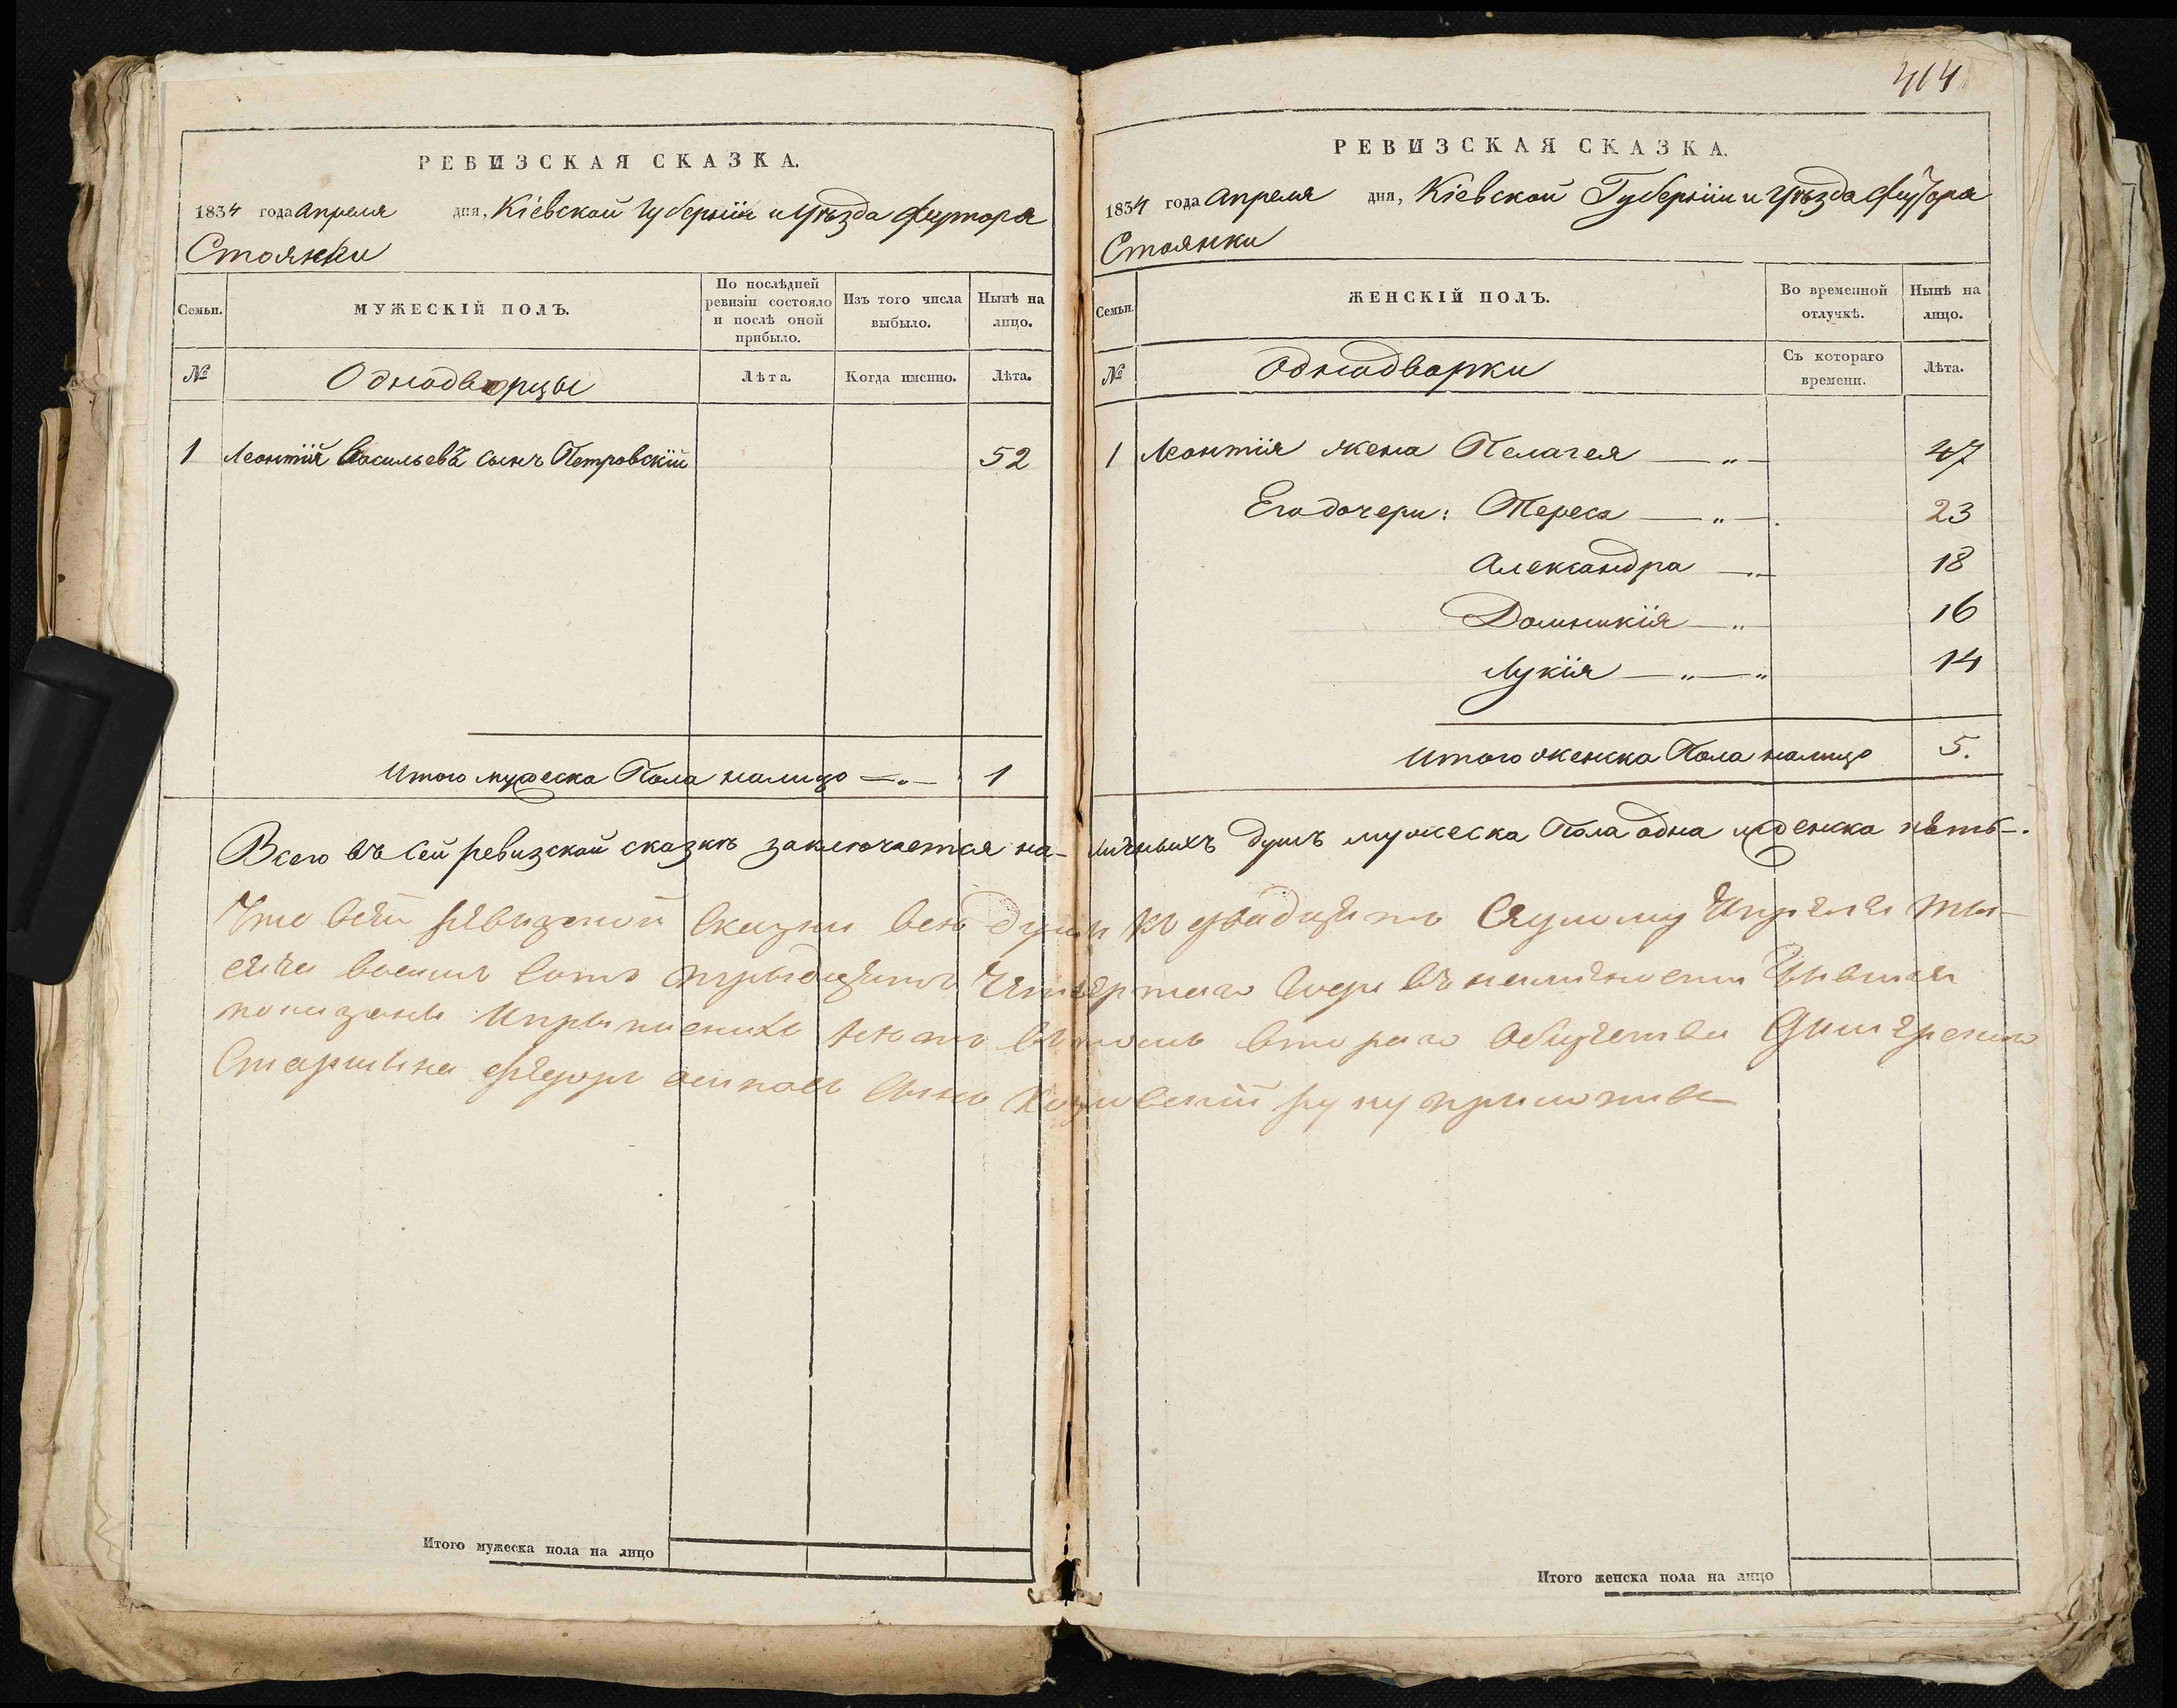 414
РЕВИЗСКАЯ СКАЗКА.
1834 года апреля дня, Кіевской Губерніи и Уѣзда футора
Стоянки
Семьи.
МУЖЕСКІЙ ПОЛЪ.
По послѣдней ревизіи состояло и послѣ оной прибыло.
Изъ того числа выбыло.
Нынѣ на лицо.
№
Однодворцы
Лѣта.
Когда именно.
Лѣта.
1 Леонтій Васильевъ сынъ Петровскій 52
Итого мужеска Пола налицо —„— 1
РЕВИЗСКАЯ СКАЗКА.
1834 года апреля дня, Кіевской Губерніи и Уѣзда футора
Стоянки
Семьи.
ЖЕНСКІЙ ПОЛЪ.
Во временной отлучкѣ.
Нынѣ на лицо.
№
Однодворки
Съ котораго времени.
Лѣта.
1 Леонтія жена Пелагея —„— 47
Его дочери: Тереса —„— 23
Александра —„— 18
Домникія —„ 16
Лукія —„—„ 14
Итого женска Пола налицо 5.
Всего въ сей ревизской сказкѣ заключается на- личныхъ душъ мужеска Пола одна женска пять.
Что всей ревизской сказки всѣ души къ двадцать Апреля ты-
сяча восемь сотъ тридцать четвертаго года въ
показаны второго общества
Старшина федоръ осиповъ сынъ руку приложилъ
Итого мужеска пола на лицо
Итого женска пола на лицо